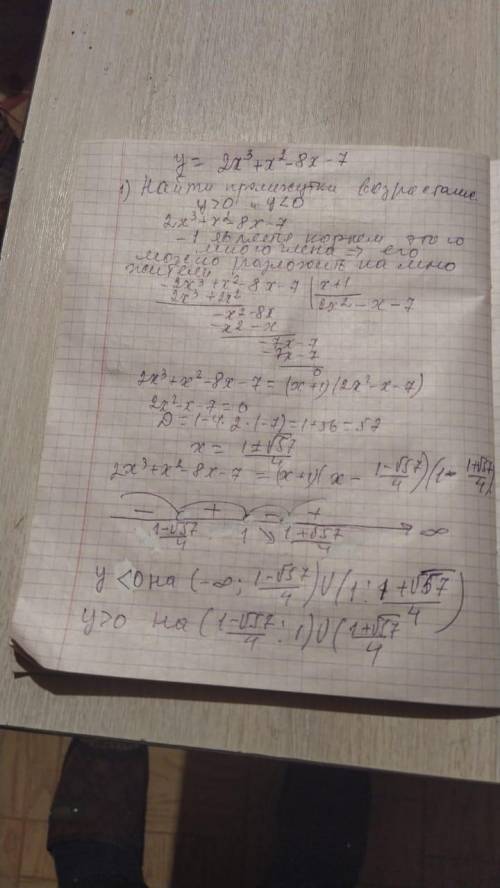 y = 2x³+x²-8x-7
1) Найти промежутки возрастание
y>0 и y<0
2x³+x²-8x-7
-1 является корнем этого
многочлена ⇒ его
можно разложить на мно
жители
2x³+x²-8x-7 | x+1
2x³+2x² 2x²-x-7
-x²-8x
-x²-x
-7x-7
-7x-7
0
2x³+x²-8x-7=(x+1)(2x²-x-7)
2x²-x-7=0
D=1-4·2·(-7)=1+56=57
x = (1±√57)/4
2x³+x²-8x-7 = (x+1)(x - (1-√57)/4)(1- (1+√57)/4)
- + - +
(1-√57)/4 1 (1+√57)/4 ∞
y<0 на (-∞; (1-√57)/4)∪(1; (1+√57)/4)
y>0 на ((1-√57)/4; 1)∪((1+√57)/4